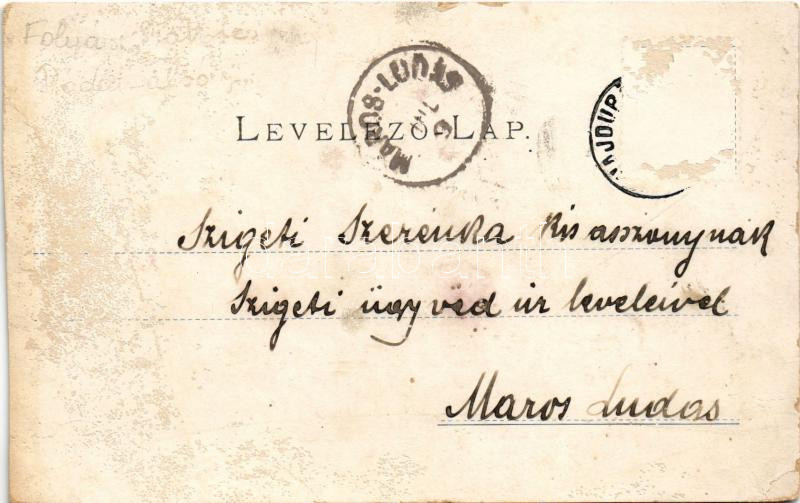 Folyás
MAROS-LUDAS
LEVELEZŐ-LAP.
Szigeti Szerénka kisasszonynak
Szigeti ügyvéd úr leveleivel
Maros Ludas